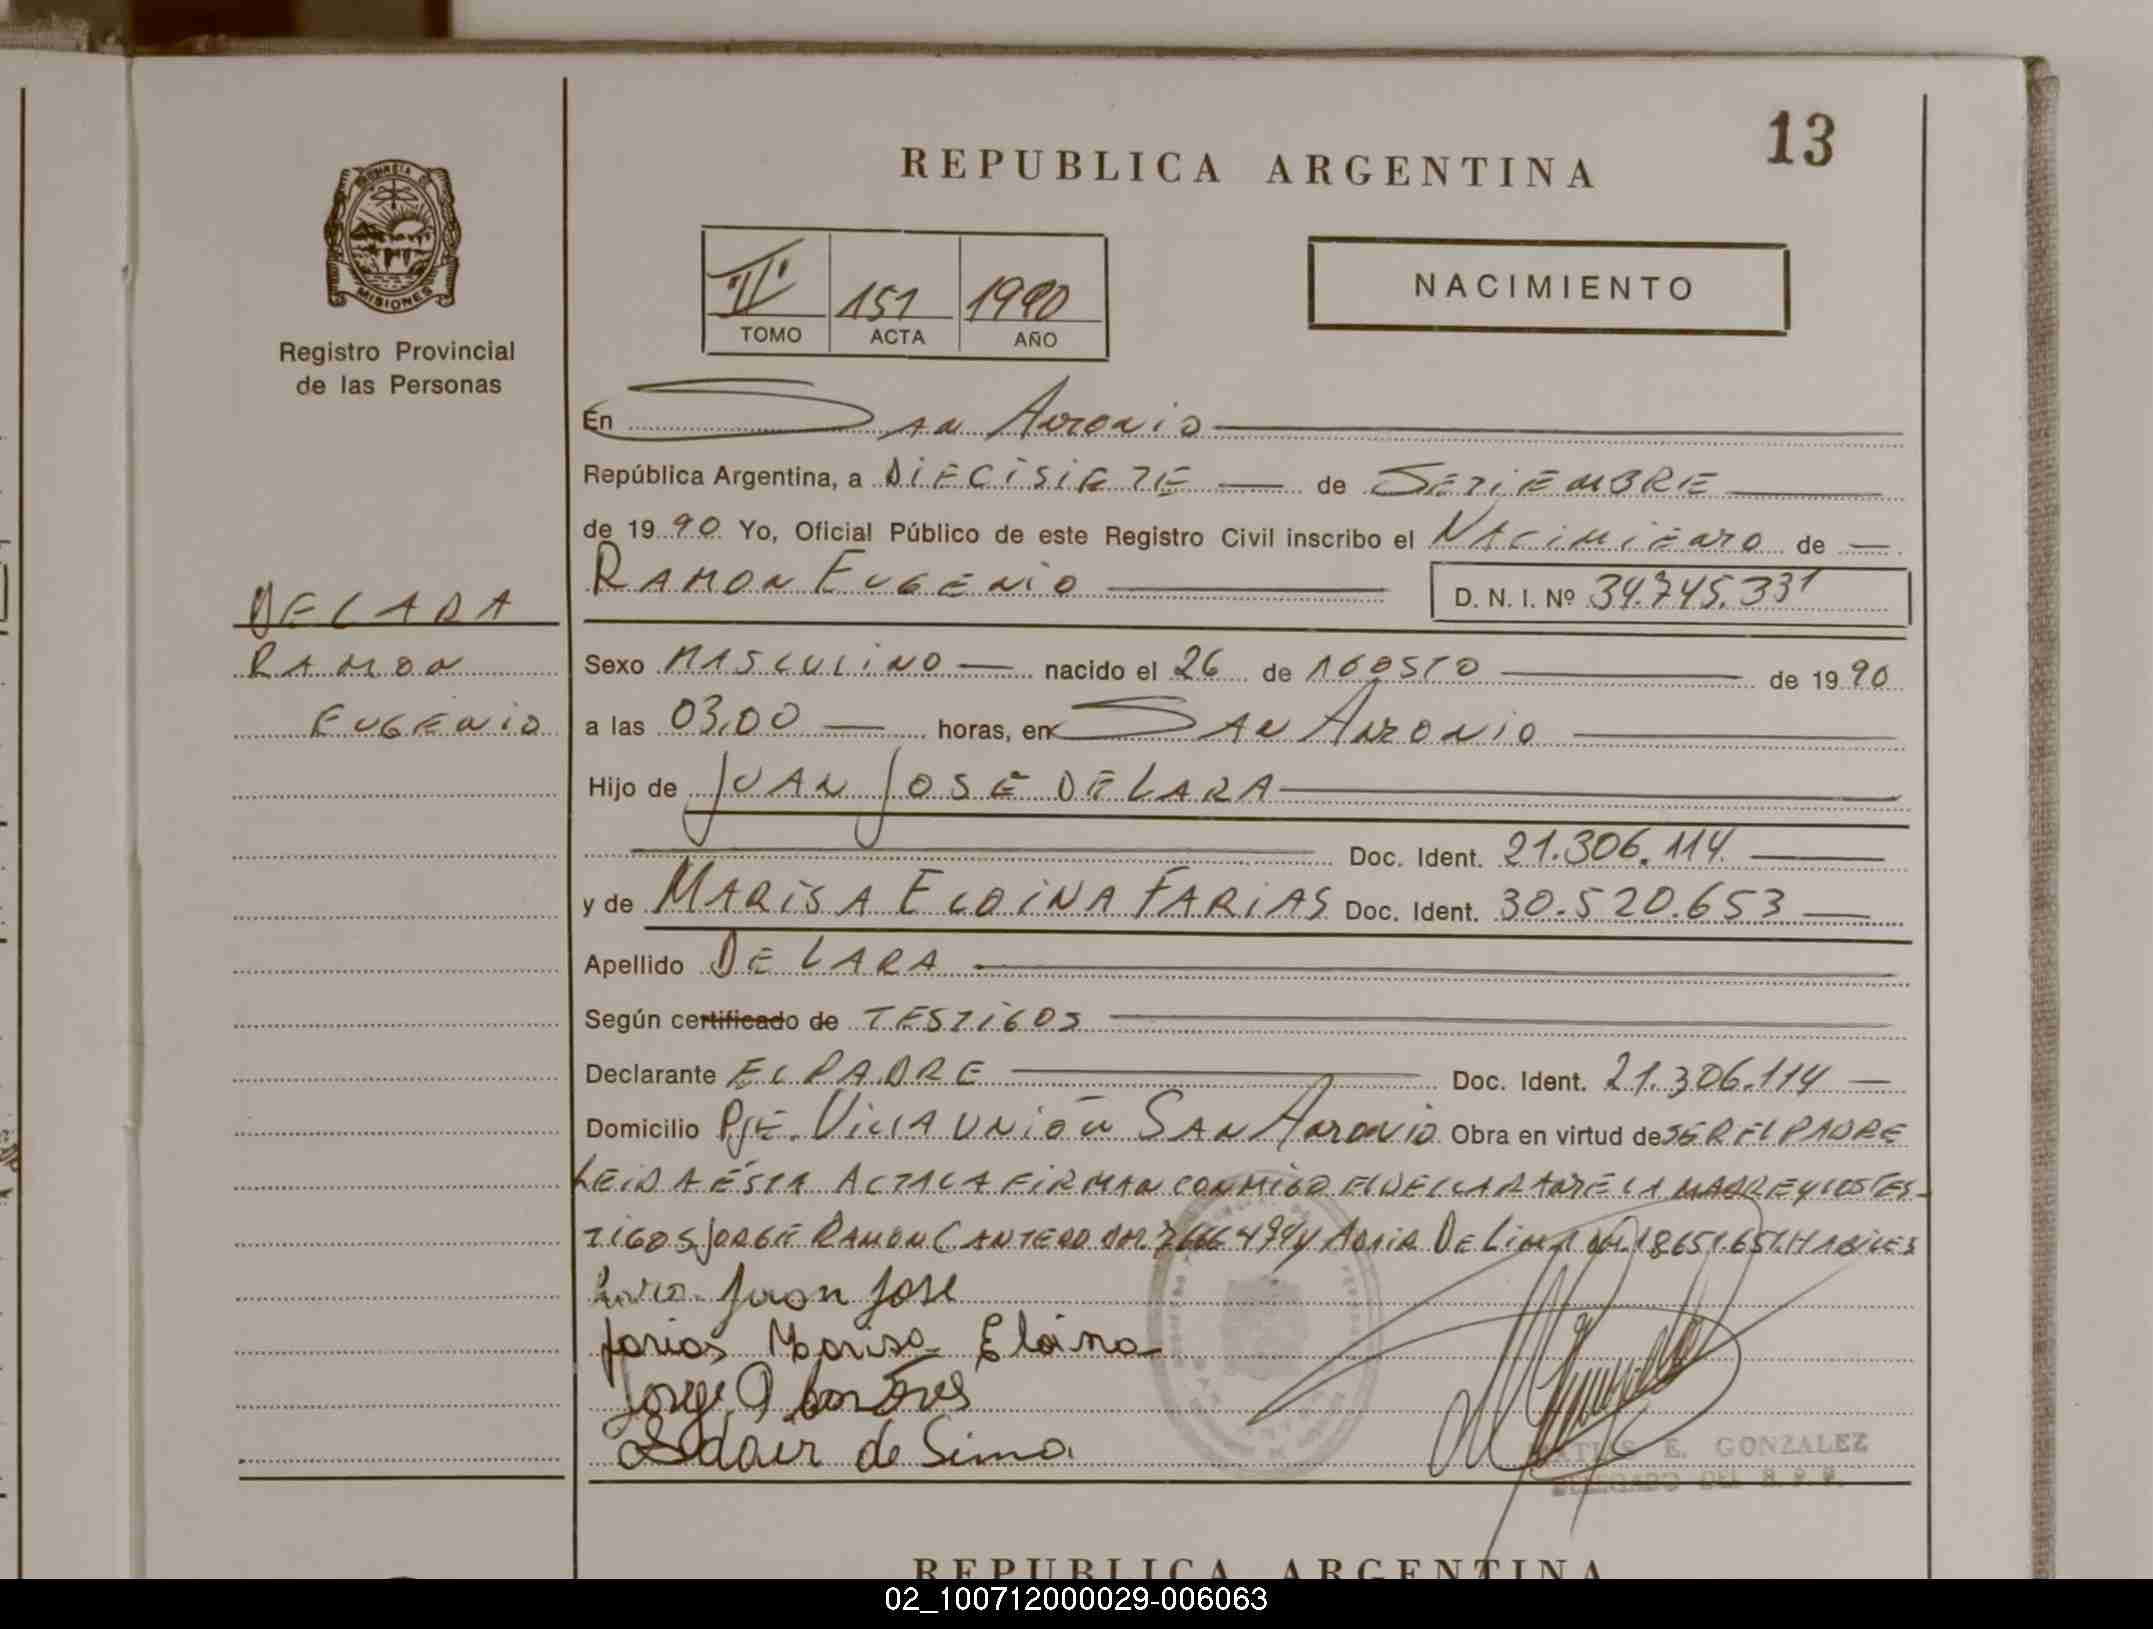 13
REPUBLICA ARGENTINA
PROVINCIA DE
MISIONES
Registro Provincial
de las Personas
III 151 1990
TOMO ACTA AÑO
NACIMIENTO
En San Antonio
República Argentina, a DIECISIETE de SETIEMBRE
de 1990 Yo, Oficial Público de este Registro Civil inscribo el NACIMIENTO de
RAMON EUGENIO D. N. I. Nº 34.745.331
DE LARA
RAMON
EUGENIO
Sexo MASCULINO nacido el 26 de AGOSTO de 1990
a las 03,00 horas, en SAN ANTONIO
Hijo de JUAN JOSE DE LARA
Doc. Ident. 21.306.114
y de MARISA ELOINA FARIAS Doc. Ident. 30.520.653
Apellido DE LARA
Según certificado de TESTIGOS
Declarante EL PADRE Doc. Ident. 21.306.114
Domicilio PJE. VILLA UNIÓN SAN ANTONIO Obra en virtud de SER EL PADRE
LEIDA ÉSTA ACTA LA FIRMAN CONMIGO EL DECLARANTE LA MADRE Y LOS TES-
TIGOS JORGE RAMON CANTERO 7666499 Y ADAIR DE LIMA 18651651. HABILES
Juan Jose
farias Marisa Eloina
Jorge
Adair de Lima
E. GONZALEZ
DELEGADO DEL R. P. P.
REPUBLICA ARGENTINA
02_100712000029-006063